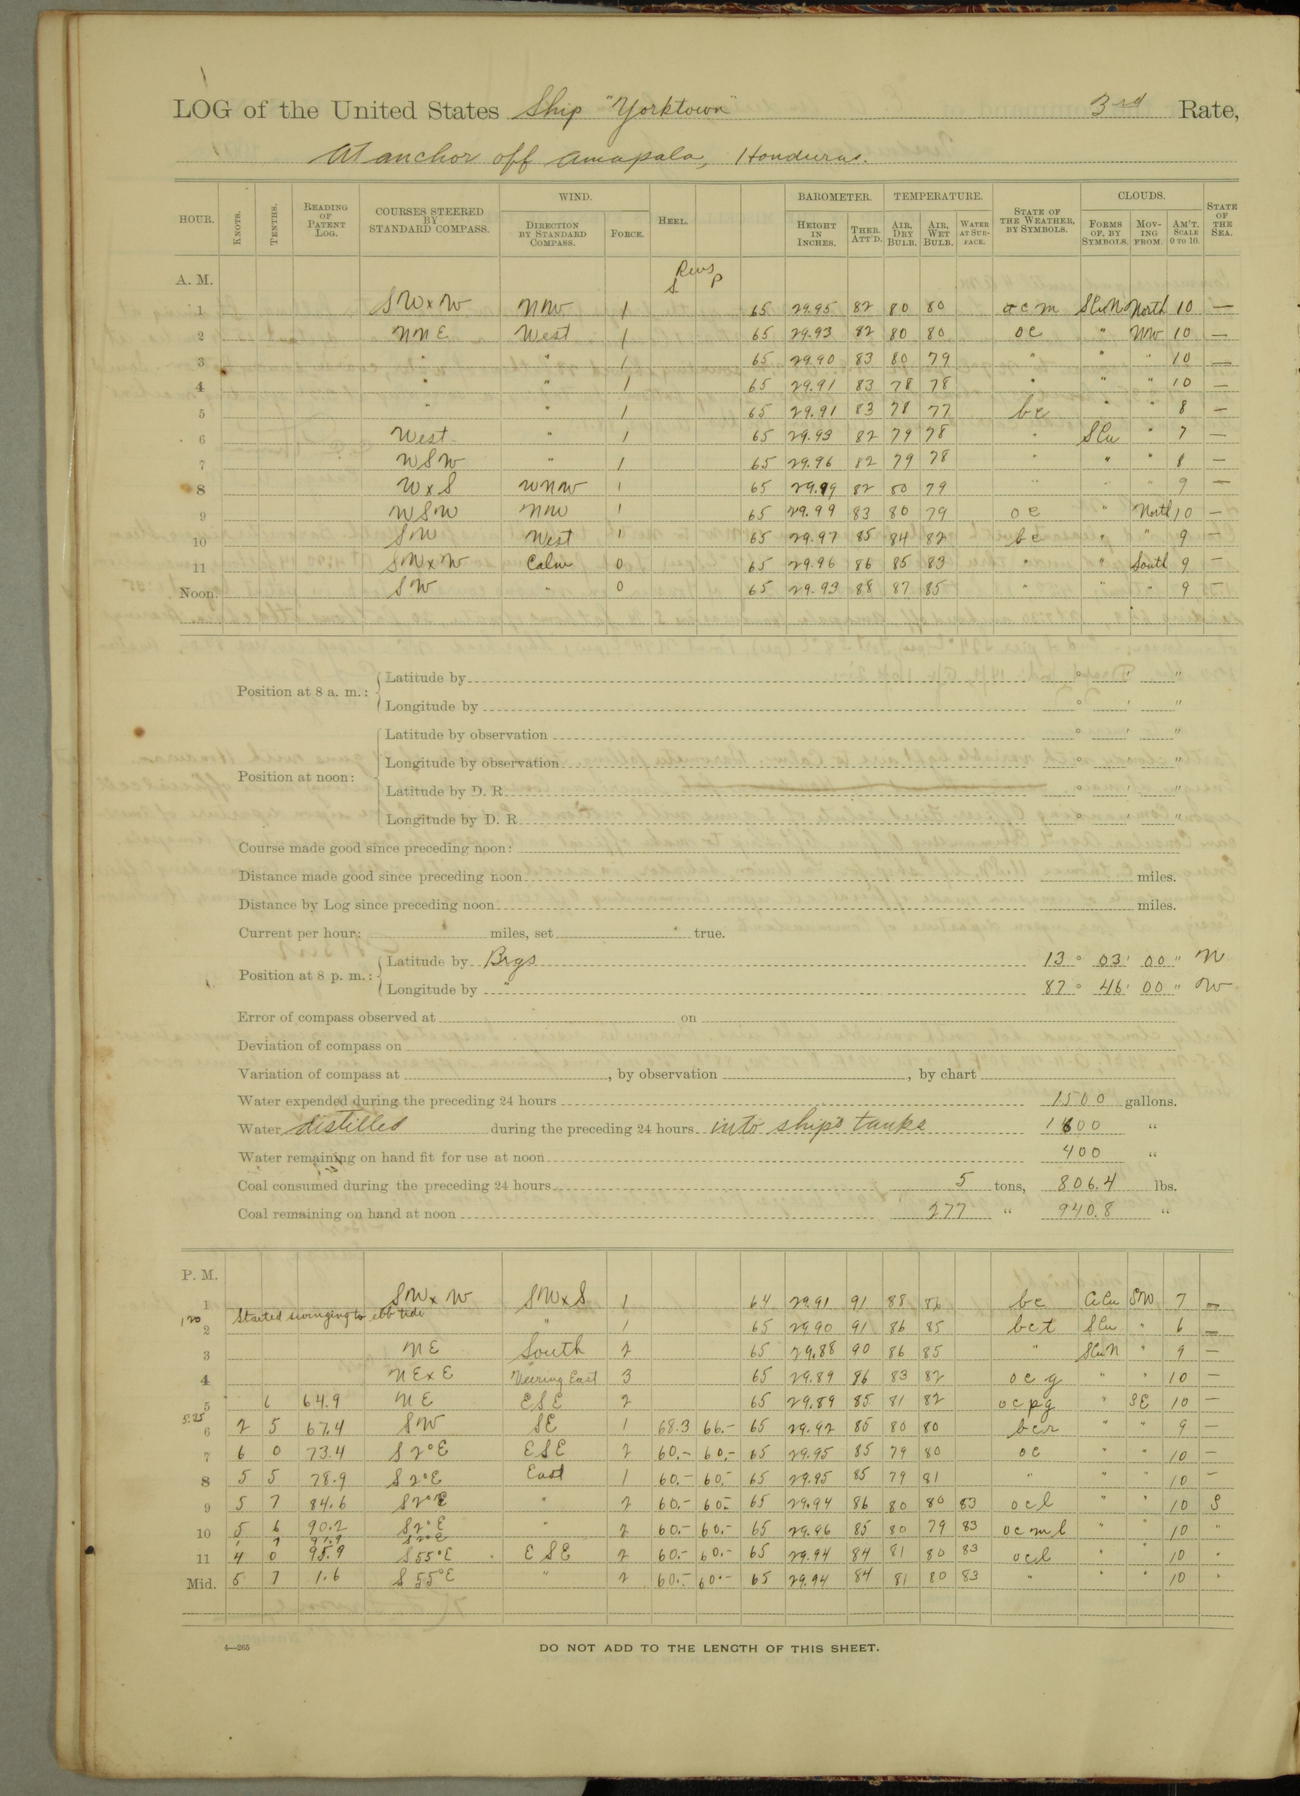 LOG of the United States Ship "Yorktown" 3rd Rate,
At anchor off Amapala, Honduras.
HOUR. KNOTS. TENTHS. READING OF PATENT LOG. COURSES STEERED BY STANDARD COMPASS. WIND. DIRECTION BY STANDARD COMPASS. FORCE. HEEL. BAROMETER. HEIGHT IN INCHES. THER. ATT'D. TEMPERATURE. AIR, DRY BULB. AIR, WET BULB. WATER AT SURFACE. STATE OF THE WEATHER, BY SYMBOLS. CLOUDS. FORMS OF, BY SYMBOLS. MOVING FROM. AM'T. SCALE 0 TO 10. STATE OF THE SEA.
A. M. Revs
S P
1 SWxW NNW 1 65 29.95 82 80 80 o c m SCuN North 10 —
2 NNE West 1 65 29.93 82 80 80 oc " NW 10 —
3 " " 1 65 29.90 83 80 79 " " " 10 —
4 " " 1 65 29.91 83 78 78 " " " 10 —
5 " " 1 65 29.91 83 78 77 bc " " 8 —
6 West " 1 65 29.93 82 79 78 " SCu " 7 —
7 WSW " 1 65 29.96 82 79 78 " " " 8 —
8 WxS WNW 1 65 29.99 82 80 79 " " " 9 —
9 WSW NW 1 65 29.99 83 80 79 oc " North 10 —
10 SW West 1 65 29.97 85 84 82 bc " " 9 —
11 SWxW Calm 0 65 29.96 86 85 83 " " South 9 —
Noon. SW " 0 65 29.93 88 87 85 " " " 9 —
Position at 8 a. m.: Latitude by ° ' "
Longitude by ° ' "
Position at noon: Latitude by observation ° ' "
Longitude by observation ° ' "
Latitude by D. R. ° ' "
Longitude by D. R. ° ' "
Course made good since preceding noon:
Distance made good since preceding noon miles.
Distance by Log since preceding noon miles.
Current per hour: miles, set ° true.
Position at 8 p. m.: Latitude by Brgs 13 ° 03 ' 00 " N
Longitude by " 87 ° 46 ' 00 " W
Error of compass observed at on
Deviation of compass on
Variation of compass at , by observation , by chart
Water expended during the preceding 24 hours 1500 gallons.
Water distilled during the preceding 24 hours into ship's tanks "
Water remaining on hand fit for use at noon 400 "
Coal consumed during the preceding 24 hours 5 tons, 806.4 lbs.
Coal remaining on hand at noon 277 " 940.8 "
P. M.
1 SWxW SWxS 1 64 29.91 91 88 86 bc CiCu SW 7 —
1 20 Started swinging to ebb tide
2 " 1 65 29.90 91 86 85 bct SCu " 6 —
3 NE South 2 65 29.88 90 86 85 " SCuN " 9 —
4 NExE Veering East 3 65 29.89 86 83 82 o c g " " 10 —
5 6 64.9 NE ESE 2 65 29.89 85 81 82 o c p g " SE 10 —
5.25
6 2 5 67.4 SW SE 1 68.3 66.- 65 29.92 85 80 80 bcr " " 9 —
7 6 0 73.4 S2°E ESE 2 60.- 60.- 65 29.95 85 79 80 oc " " 10 —
8 5 5 78.9 S2°E East 1 60.- 60.- 65 29.95 85 79 81 " " " 10 —
9 5 7 84.6 S2°E " 2 60.- 60.- 65 29.94 86 80 80 83 ocl " " 10 S
10 5 6 90.2 S2°E " 2 60.- 60.- 65 29.96 85 80 79 83 ocml " " 10 "
1 7 91.9 S2°E
11 4 0 95.9 S55°E ESE 2 60.- 60.- 65 29.94 84 81 80 83 ocl " " 10 "
Mid. 5 7 1.6 S55°E " 2 60.- 60.- 65 29.94 84 81 80 83 " " " 10 "
4—265 DO NOT ADD TO THE LENGTH OF THIS SHEET.